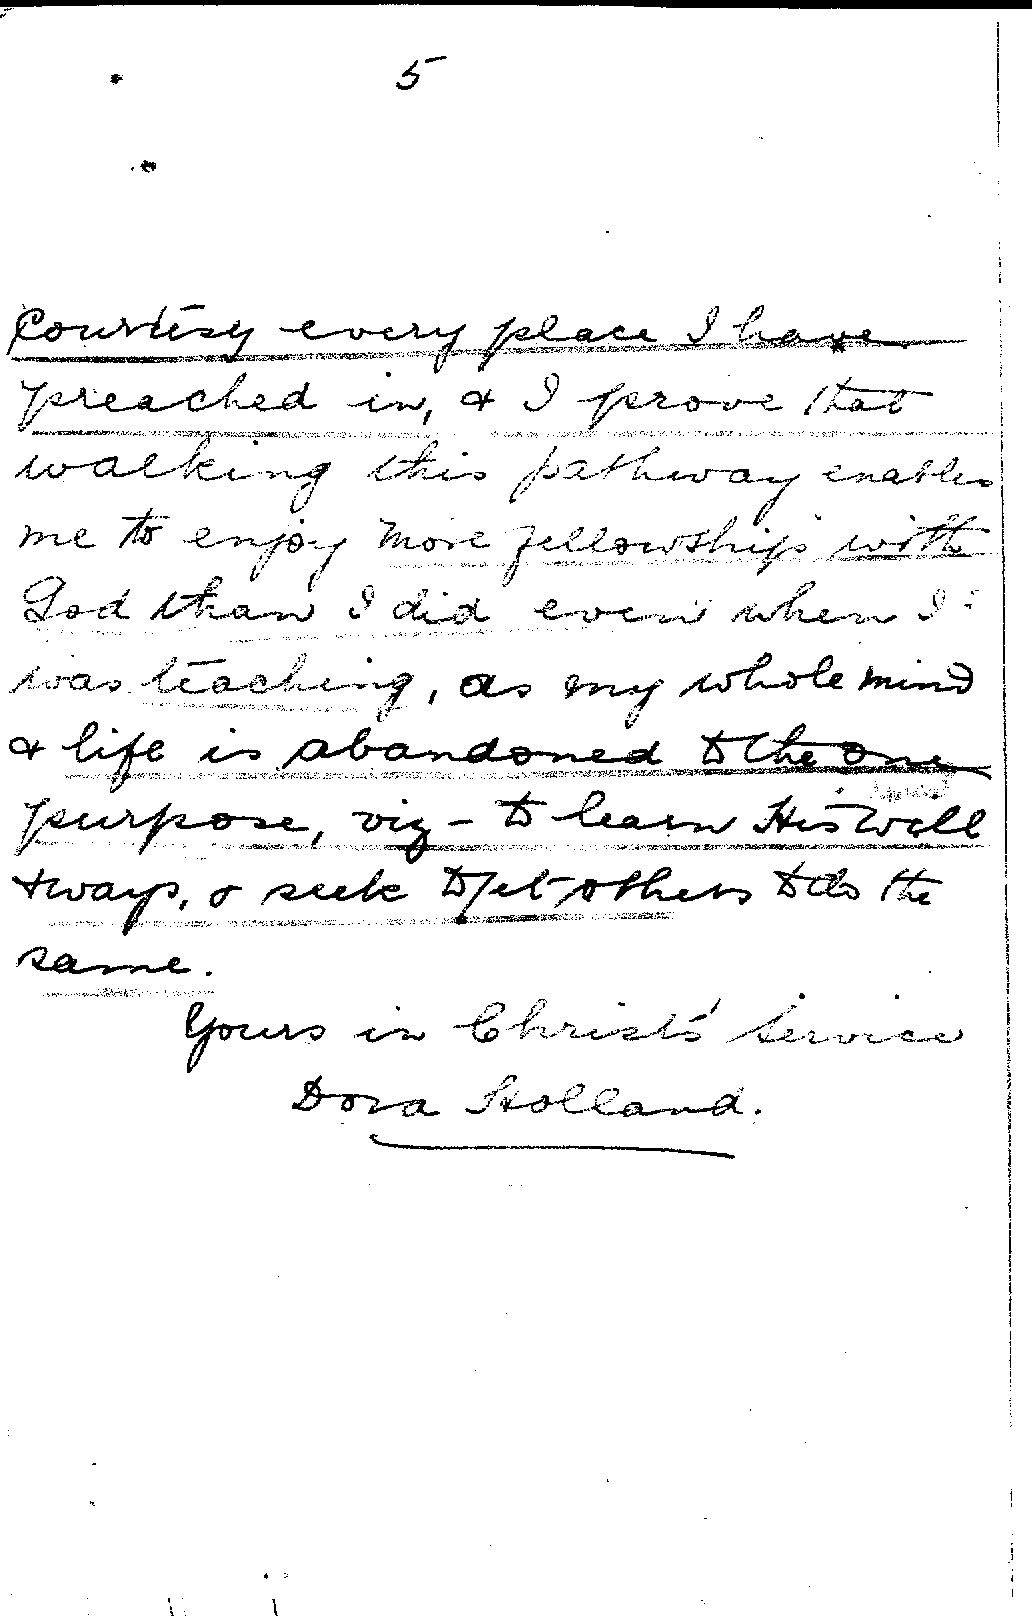 5
Courtesy every place I have
preached in, & I prove that
walking this pathway enables
me to enjoy more fellowship with
God than I did even when I
was teaching, as my whole mind
& life is abandoned to the one
purpose, viz - to learn His will
& ways, & seek to get others to do the
same.
Yours in Christ's Service
Dora Holland.